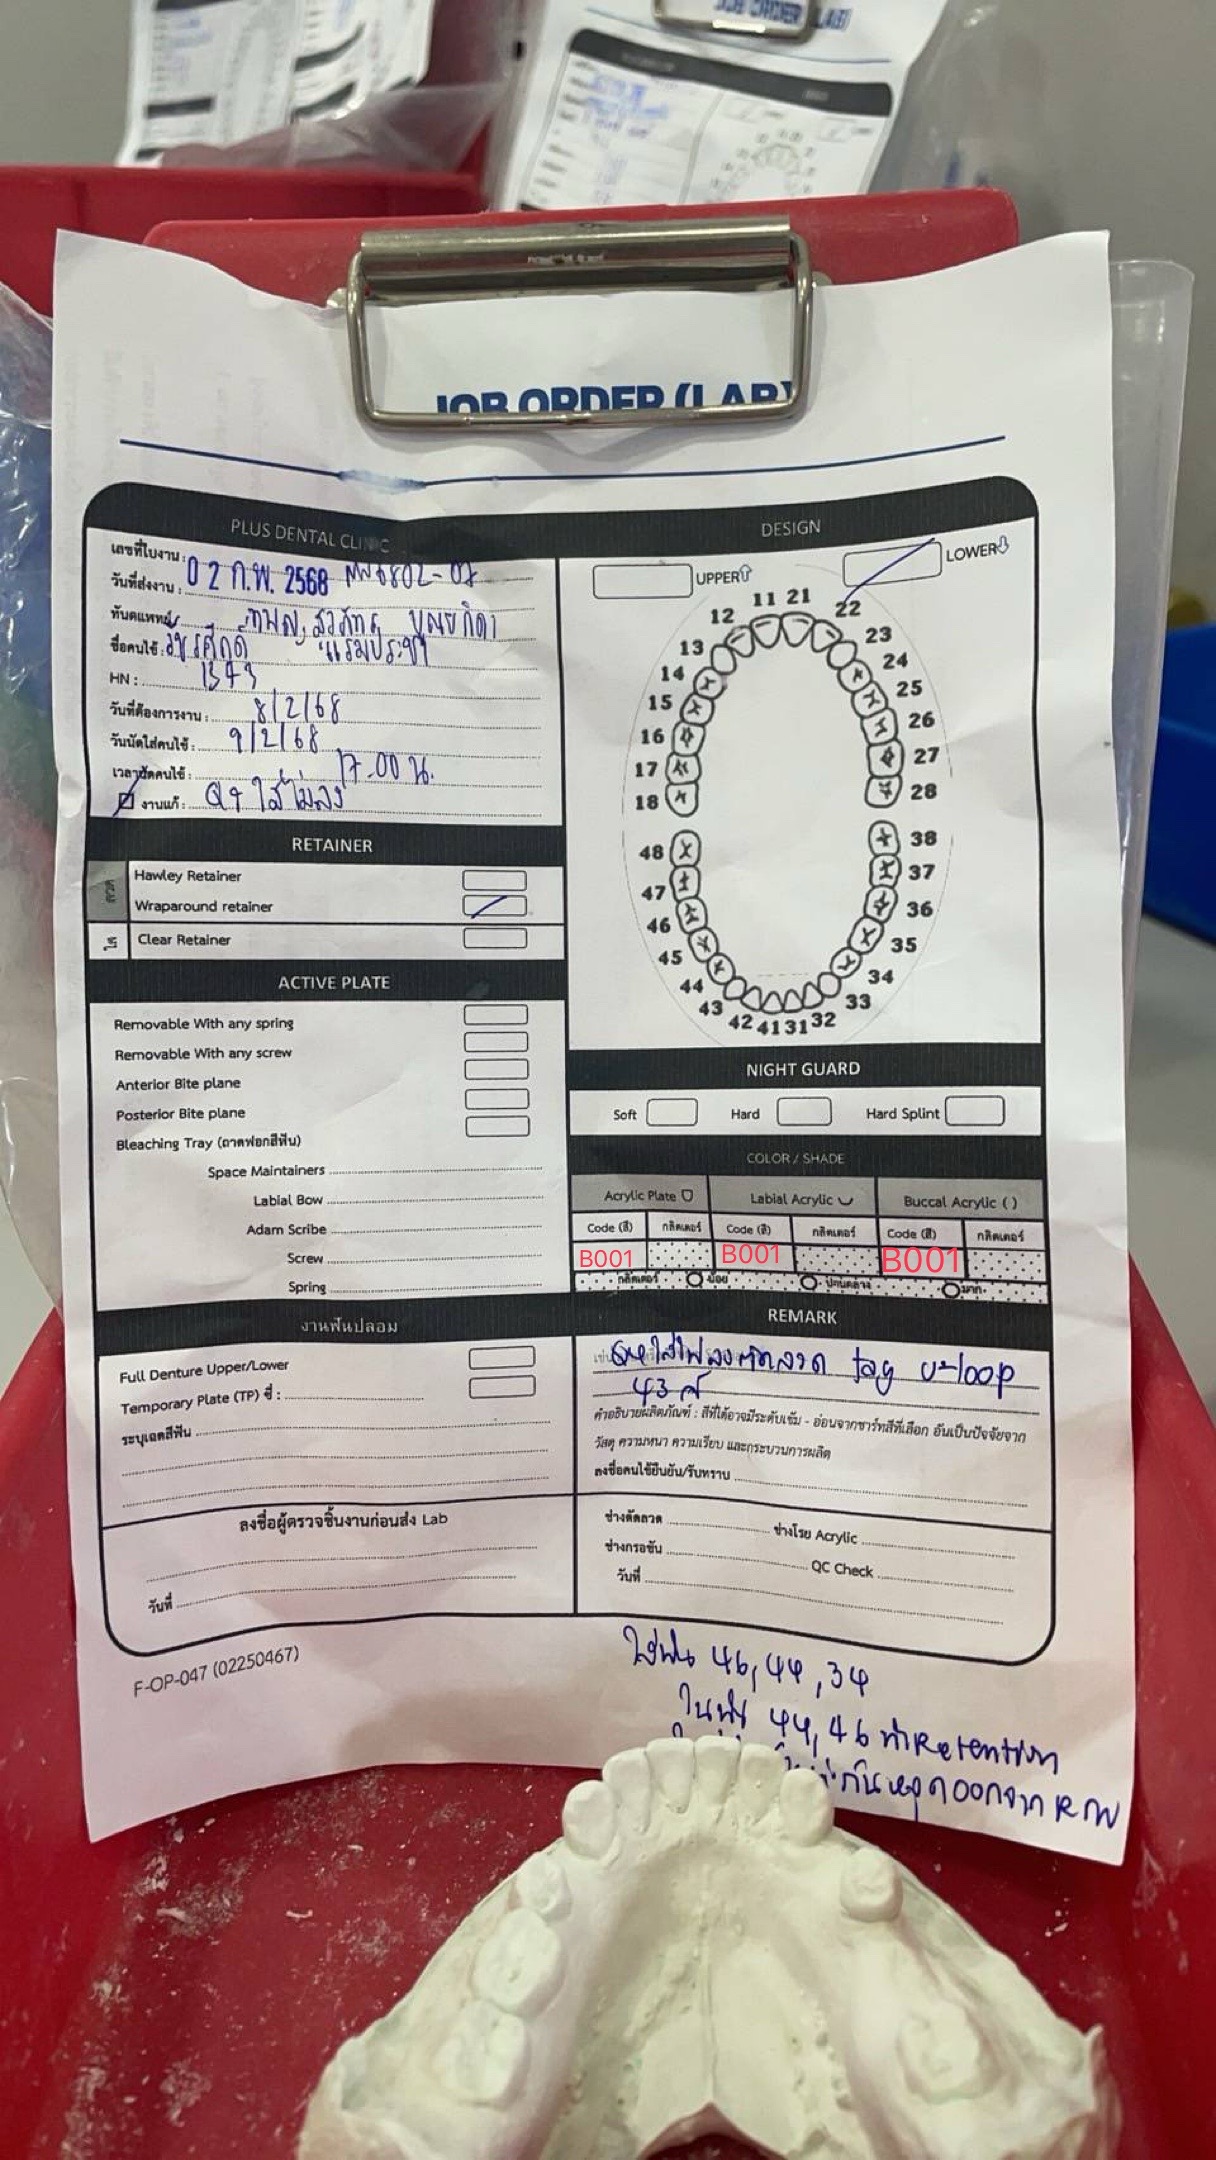 JOB ORDER (LAB)
PLUS DENTAL CLINIC
เลขที่ใบงาน :
วันที่ส่งงาน : 0 2 ก.พ. 2568
ทันตแพทย์
ชื่อคนไข้ :
HN : 1343
วันที่ต้องการงาน : 8/2/68
วันนัดใส่คนไข้ : 9/2/68
เวลานัดคนไข้ : 17.00 น.
งานแก้ : ใส่ไม่ลง
RETAINER
ลวด
Hawley Retainer
Wraparound retainer
ใส
Clear Retainer
ACTIVE PLATE
Removable With any spring
Removable With any screw
Anterior Bite plane
Posterior Bite plane
Bleaching Tray (ถาดฟอกสีฟัน)
Space Maintainers
Labial Bow
Adam Scribe
Screw
Spring
งานฟันปลอม
Full Denture Upper/Lower
Temporary Plate (TP) ซี่ :
ระบุเฉดสีฟัน
ลงชื่อผู้ตรวจชิ้นงานก่อนส่ง Lab
วันที่
F-OP-047 (02250467)
DESIGN
UPPER
LOWER
11 21
12 22
13 23
14 24
15 25
16 26
17 27
18 28
48 38
47 37
46 36
45 35
44 34
43 33
42 41 31 32
NIGHT GUARD
Soft Hard Hard Splint
COLOR / SHADE
Acrylic Plate Labial Acrylic Buccal Acrylic ( )
Code (สี) กลิตเตอร์ Code (สี) กลิตเตอร์ Code (สี) กลิตเตอร์
B001 B001 B001
กลิตเตอร์ น้อย ปานกลาง มาก
REMARK
tag U-loop
43
คำอธิบายผลิตภัณฑ์ : สีที่ได้อาจมีระดับเข้ม - อ่อนจากชาร์ทสีที่เลือก อันเป็นปัจจัยจาก
วัสดุ ความหนา ความเรียบ และกระบวนการผลิต
ลงชื่อคนไข้ยืนยัน/รับทราบ
ช่างดัดลวด ช่างโรย Acrylic
ช่างกรอขัด QC Check
วันที่
ใส่ฟัน 46, 44, 34
44, 46 ทำ Retention
กันหลุดออกจาก